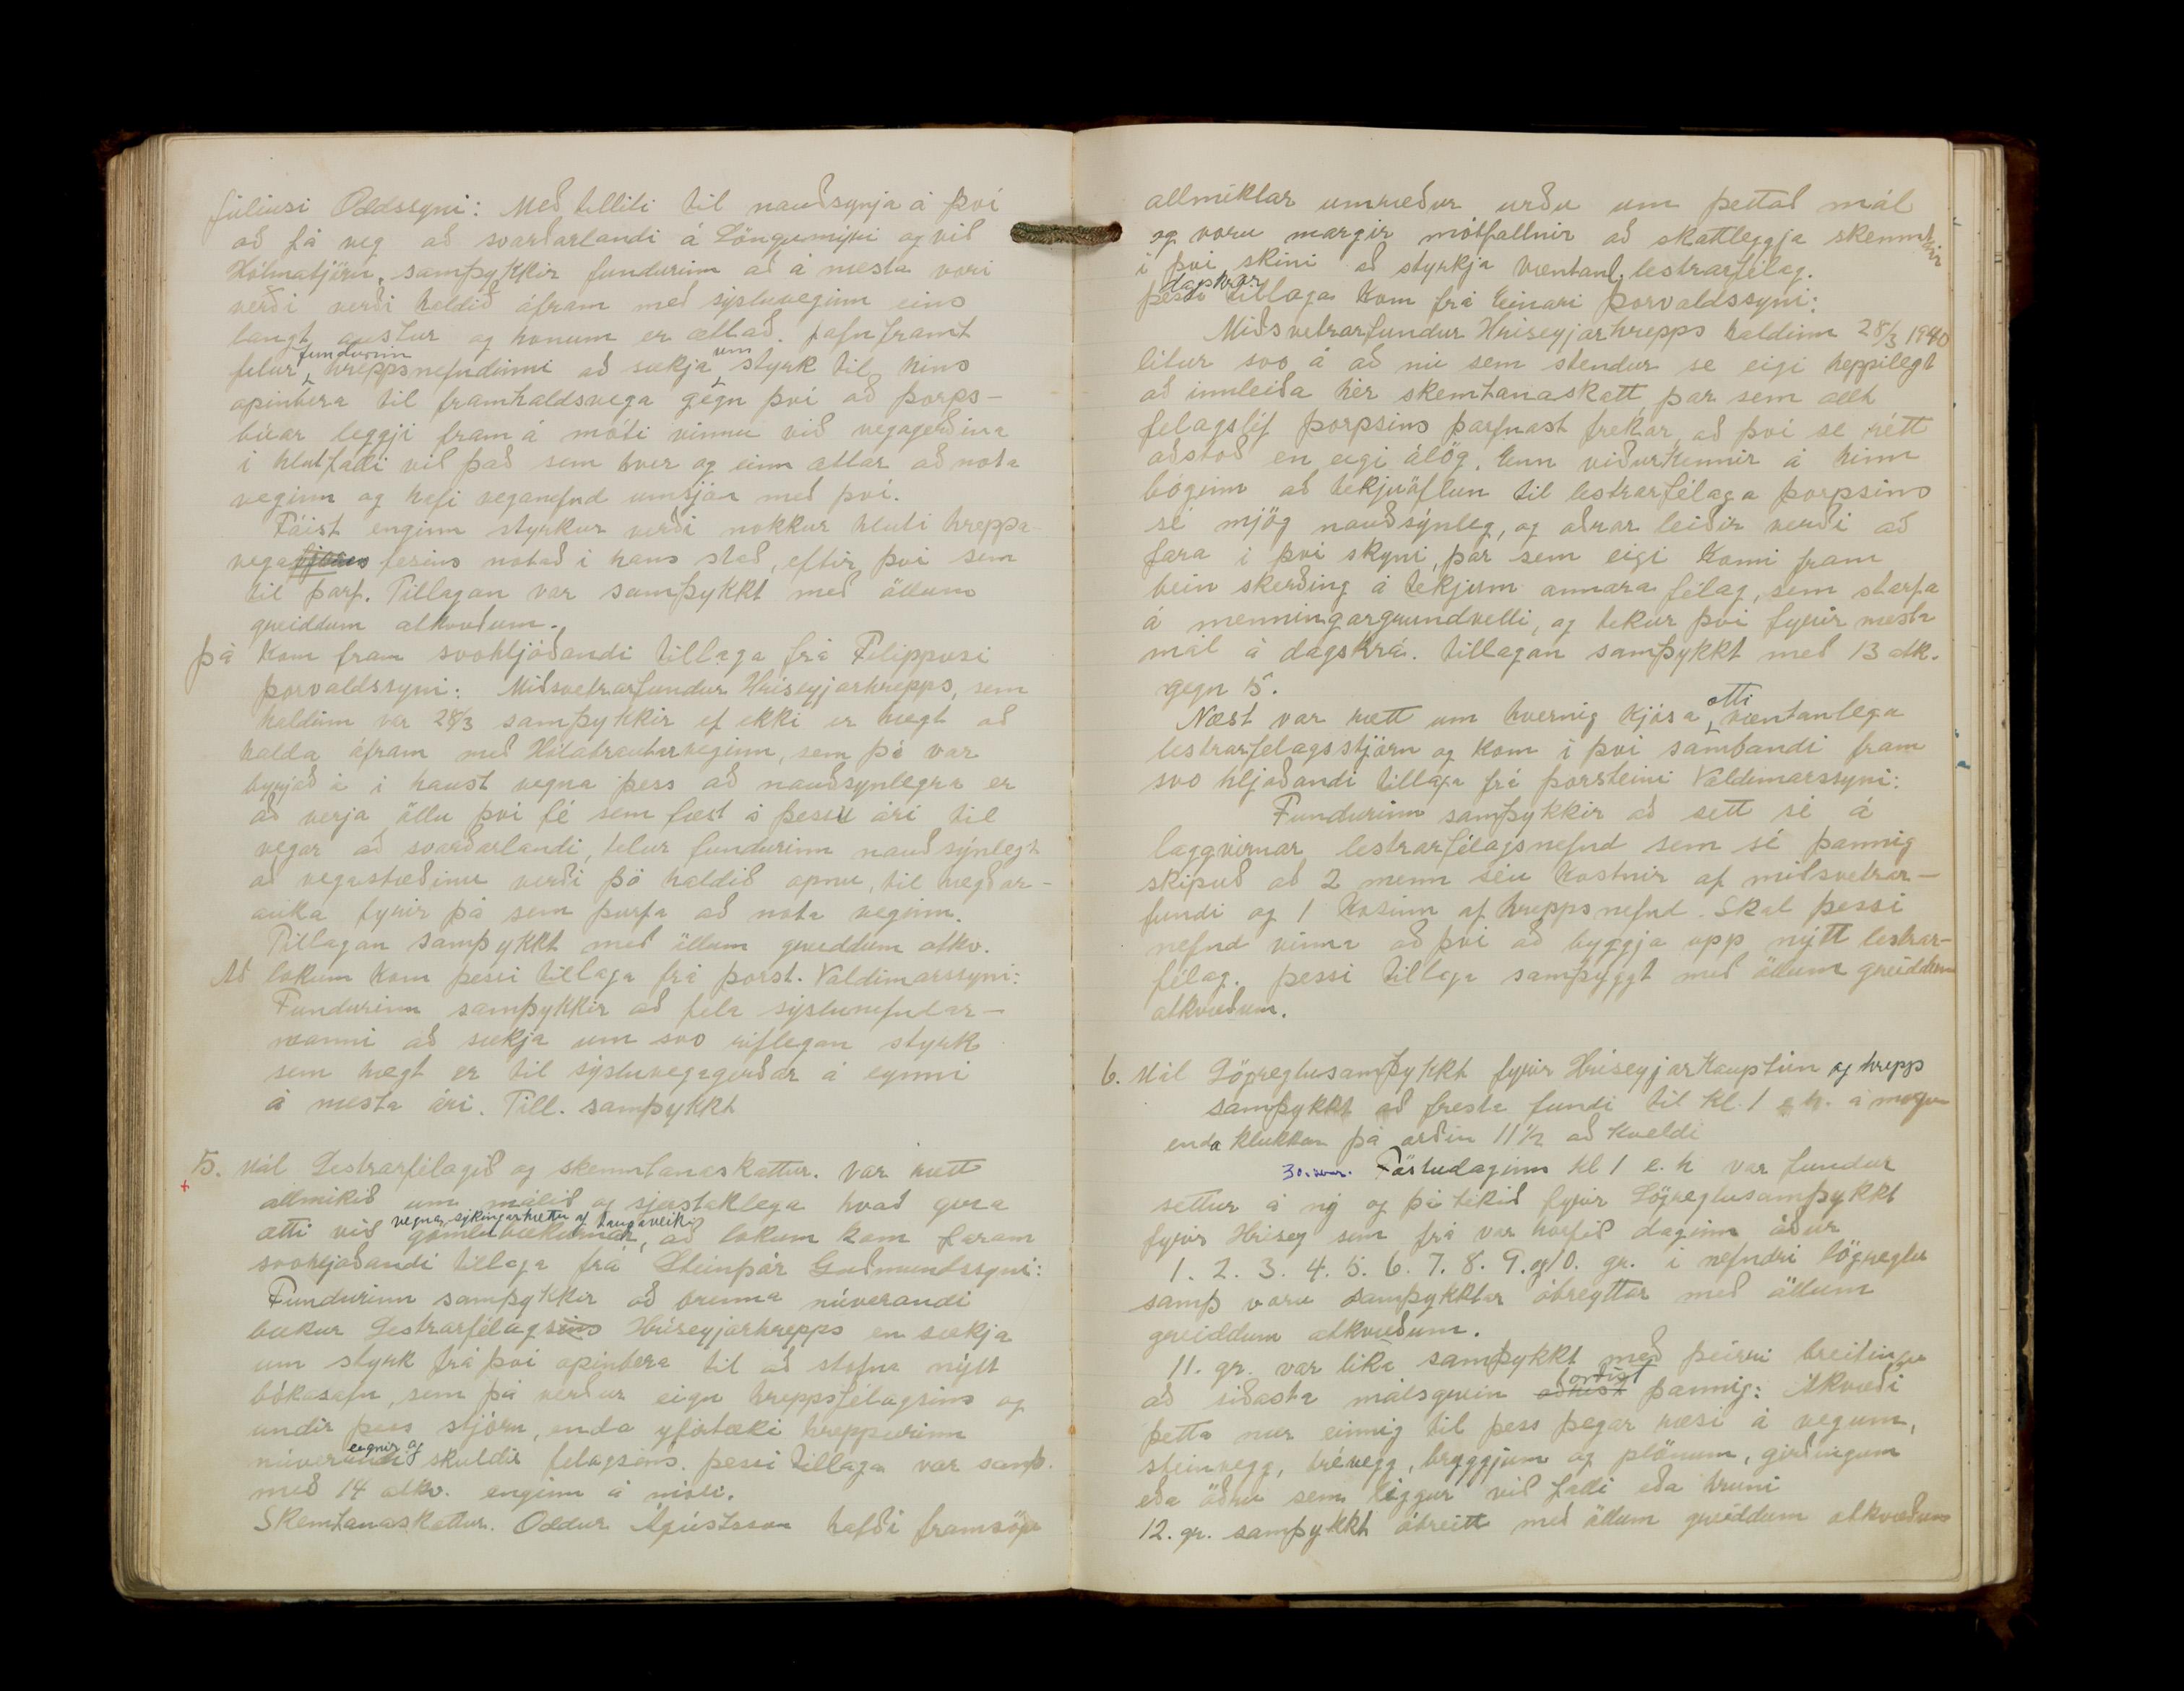 júlíusi Oddssyni: Með tilliti til nauðsynja á því
að fá veg að svarðarlandi á Löngumýri og við
Hólmatjörn, samþykkir fundurinn að á næsta vori
verði verði haldið áfram með sýsluveginn eins
langt austur og honum er ætlað. Jafnframt
felur fundurinn hreppsnefndinni að sækja um styrk til hins
opinbera til framhaldsvega gegn því að þorps-
búar leggji fram á móti vinnu við vegagerðina
i hlutfalli við það sem hver og einn ætlar að nota
veginn og hafi veganefnd umsjón með því.
Fáist enginn styrkur verði nokkur hluti hreppa-
vega fésins notað i hans stað, eftir því sem
til þarf. Tillagan var samþykkt með öllum
greiddum atkvæðum.
Þá kom fram svohljóðandi tillaga frá Filippusi
Þorvaldssyni: Miðsvetrarfundur Hríseyjarhrepps, sem
haldinn var 28/3 samþykkir ef ekki er hægt að
halda áfram með veginn, sem þó var
byrjað á i haust vegna þess að nauðsynlegra er
að verja öllu því fé sem fæst á þessu ári til
vegar að svarðarlandi, telur fundurinn nauðsýnlegt
að vegastæðinu verði þó haldið opnu, til hægðar-
auka fyrir þá sem þurfa að nota veginn.
Tillagan samþykkt með öllum greiddum atkv.
Að lokum kom þessi tillaga frá Þorst. Valdimarssyni:
Fundurinn samþykkir að fela sýslunefndar-
manni að sækja um svo riflegan styrk
sem hægt er til sýsluvegagerðar á eynni
á næsta ári. Till. samþykkt
5. Mál Lestrarfélagið og skemmtanaskattur. Var rætt
allmikið um málið og sjerstaklega hvað gera
ætti við gömlu bækurnar vegna sýkingarhættu af taugaveiki, að lokum kom fram
svohljóðandi tillaga frá Steinþór Guðmundssyni:
Fundurinn samþykkir að brenna núverandi
bækur Lestrarfélagsins Hríseyjarhrepps en sækja
um styrk frá því opinbera til að stofna nýtt
bókasafn, sem þá verður eign hreppsfélagsins og
undir þess stjórn, enda yfirtæki hreppurinn
núverandi eignir og skuldir felagsins. Þessi tillaga var samþ.
með 14 atkv. enginn á móti.
Skemtanaskattur. Oddur Ágústsson hafði framsögu
allmiklar umræður urðu um þettað mál
og voru margir mótfallnir að skattleggja skemmtanir
i því skini að styrkja væntanl. lestrarfélag.
Þessi dagskrár tillaga kom frá Einari Þorvaldssyni:
Miðsvetrarfundur Hríseyjarhrepps haldinn 28/3 1940
litur svo á að nú sem stendur se eigi heppilegt
að innleiða hér skemtanaskatt, þar sem allt
felagslíf þorpsins þarfnast frekar, að því se rétt
aðstoð en eigi álög. Enn viðurkennir á hinn
bóginn að tekjuöflun til lestrarfélaga þorpsins
sé mjög nauðsýnleg, og aðrar leiðir verði að
fara i því skyni, þar sem eigi komi fram
bein skerðing á tekjum annara félag, sem starfa
á menningargrundvelli, og tekur því fyrir næsta
mál á dagskrá. Tillagan samþykkt með 13 atk.
gegn 5.
Næst var rætt um hvernig kjósa ætti væntanlega
lestrarfelagsstjórn og kom i því sambandi fram
svo hljóðandi tillaga frá Þorsteini Valdimarssyni:
Fundurinn samþykkir að sett sé á
laggvirnar lestrarfélagsnefnd sem sé þannig
skipuð að 2 menn séu kostnir af miðsvetrar-
fundi og 1 kosinn af hreppsnefnd. Skal þessi
nefnd vinna að því að byggja upp nýtt lestrar-
félag. Þessi tillaga samþyggt með öllum greiddum
atkvæðum.
6. Mál Lögreglusamþykkt fyrir Hríseyjarkauptún og hrepp
samþykkt að fresta fundi til kl. 1 e. h. á morgun
enda klukkan þá orðin 11 1/2 að kveldi
30. mar. Föstudaginn kl 1 e. h var fundur
settur á ný og þá tekið fyrir Lögreglusamþykkt
fyrir Hrísey sem frá var horfið daginn áður
1. 2. 3. 4. 5. 6. 7. 8. 9. og 10. gr. i nefndri lögreglu
samþ voru samþykktar óbreyttar með öllum
greiddum atkvæðum.
11. gr. var lika samþykkt með þeirri breitingu
að siðasta málsgrein orðist þannig: Ákvæði
þetta nær einnig til þess þegar ræsi á vegum,
steinvegg, trévegg, bryggjum og plönum, girðingum
eða öðru sem liggur við falli eða hruni
12. gr. samþykkt óbreitt með öllum greiddum atkvæðum